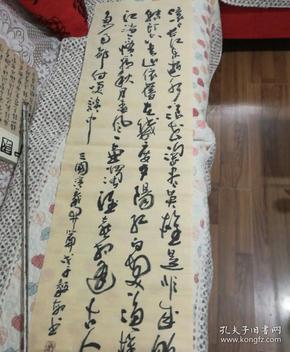 滚滚长江东逝水浪花淘尽英雄是非成败
转头空青山依旧在几度夕阳红白发渔樵
江渚上惯看秋月春风一壶浊酒喜相逢古今
多少事都付笑谈中
三国演义开篇戊子
孔夫子旧书网